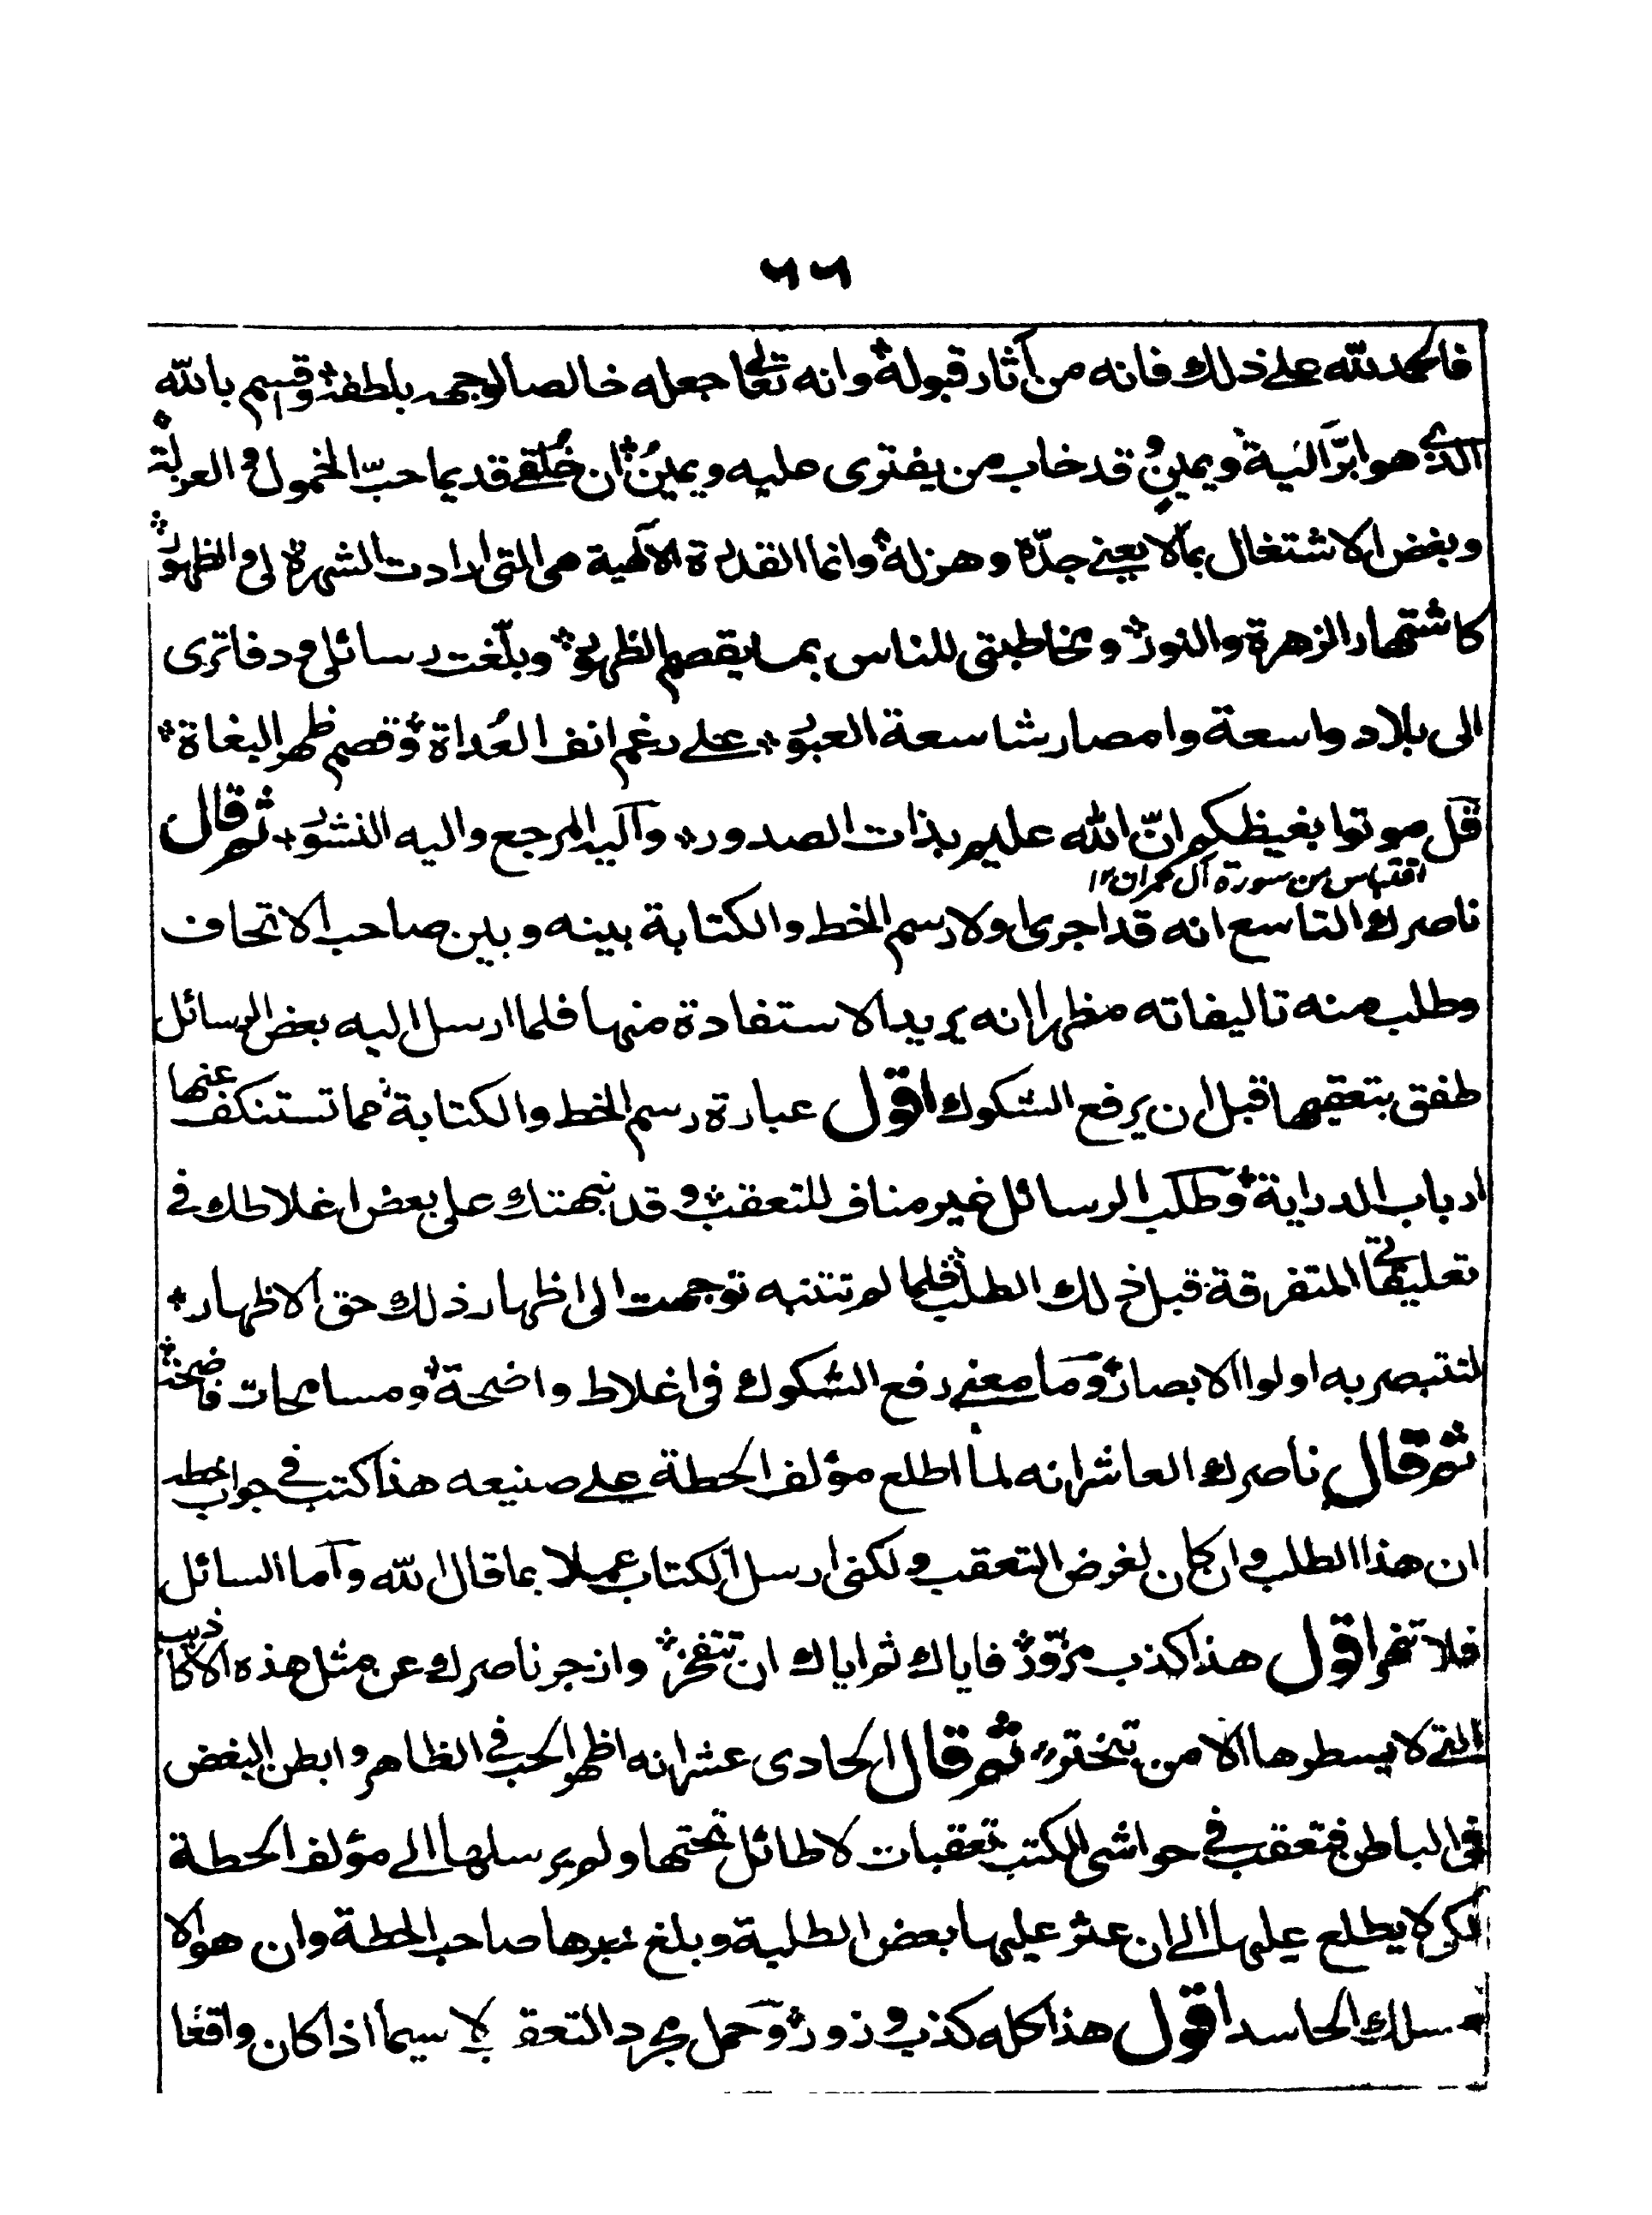 ٦٦
فالحمد لله علے ذلك فانه من آثار قبوله * وانه تعالى جعله خالصا لوجهه بلطفه * وقسم بالله
الذي هو ابرّ اَلیة ويمين * قد خاب من يفترى عليه ويمين * ان خُلقے قديما حبّ الخمول والعزلة *
وبغض الاشتغال بما لا يعنے جدّه وهزله * وانما القدرة الآلهية هى التى ارادت الشهرة لى والظهور *
كاشتهار الزهرة والنور * ومخاطبتى للناس بما يقصم الظهور * وبلّغت رسائلى ودفاترى
الى بلاد واسعة وامصار شاسعة العبور * علے رغم انف العُداة * وقصم ظهر البغاة *
قل موتوا بغيظكم انّ الله عليم بذات الصدور * وآليه المرجع واليه النشور * ثم قال
اقتباس من سورة آل عمران ١٢
ناصرك التاسع انه قد اجرى اولا رسم الخط والكتابة بينه وبين صاحب الاتحاف
وطلب منه تاليفاته مظهرا انه يريد الاستفادة منها فلما ارسل اليه بعض الرسائل
طفق بتعقبها قبل ان يرفع الشكوك اقول عبارة رسم الخط والكتابة * مما تستنكف عنها
ارباب الدراية * وطلب الرسائل غير مناف للتعقب * وقد نبهتك على بعض اغلاطك فے
تعليقاتى المتفرقة قبل ذلك الطلب * فلما لم تتنبه توجهت الى اظهار ذلك حق الاظهار *
لتتبصر به اولوا الابصار * وما معنے رفع الشكوك فى اغلاط واضحة * ومسامحات فاضحة *
ثم قال ناصرك العاشر انه لما اطلع مؤلف الحطة علے صنيعه هذا كتب فے جواب خطه
ان هذا الطلب وان كان لغرض التعقب ولكنى ارسل الكتاب عملا بما قال الله وآما السائل
فلا تنهر اقول هذا كذب مزوّر * فاياك ثم اياك ان تتفخر * وازجر ناصرك عن مثل هذه الاكاذيب
التے لا يسطرها الا من تبختر * ثم قال الحادى عشر انه اظهر الحب فے الظاهر وابطن البغض
فى الباطن فتعقب فے حواشى الكتب تعقبات لا طائل تحتها ولم يرسلها الے مؤلف الحطة
لكى لا يطلع عليها الے ان عثر عليها بعض الطلبة وبلغ خبرها صاحب الحطة وان هو الا
مسلك الحاسد اقول هذا كله كذب وزور * وحمل مجرد التعقب لا سيما اذا كان واقعا